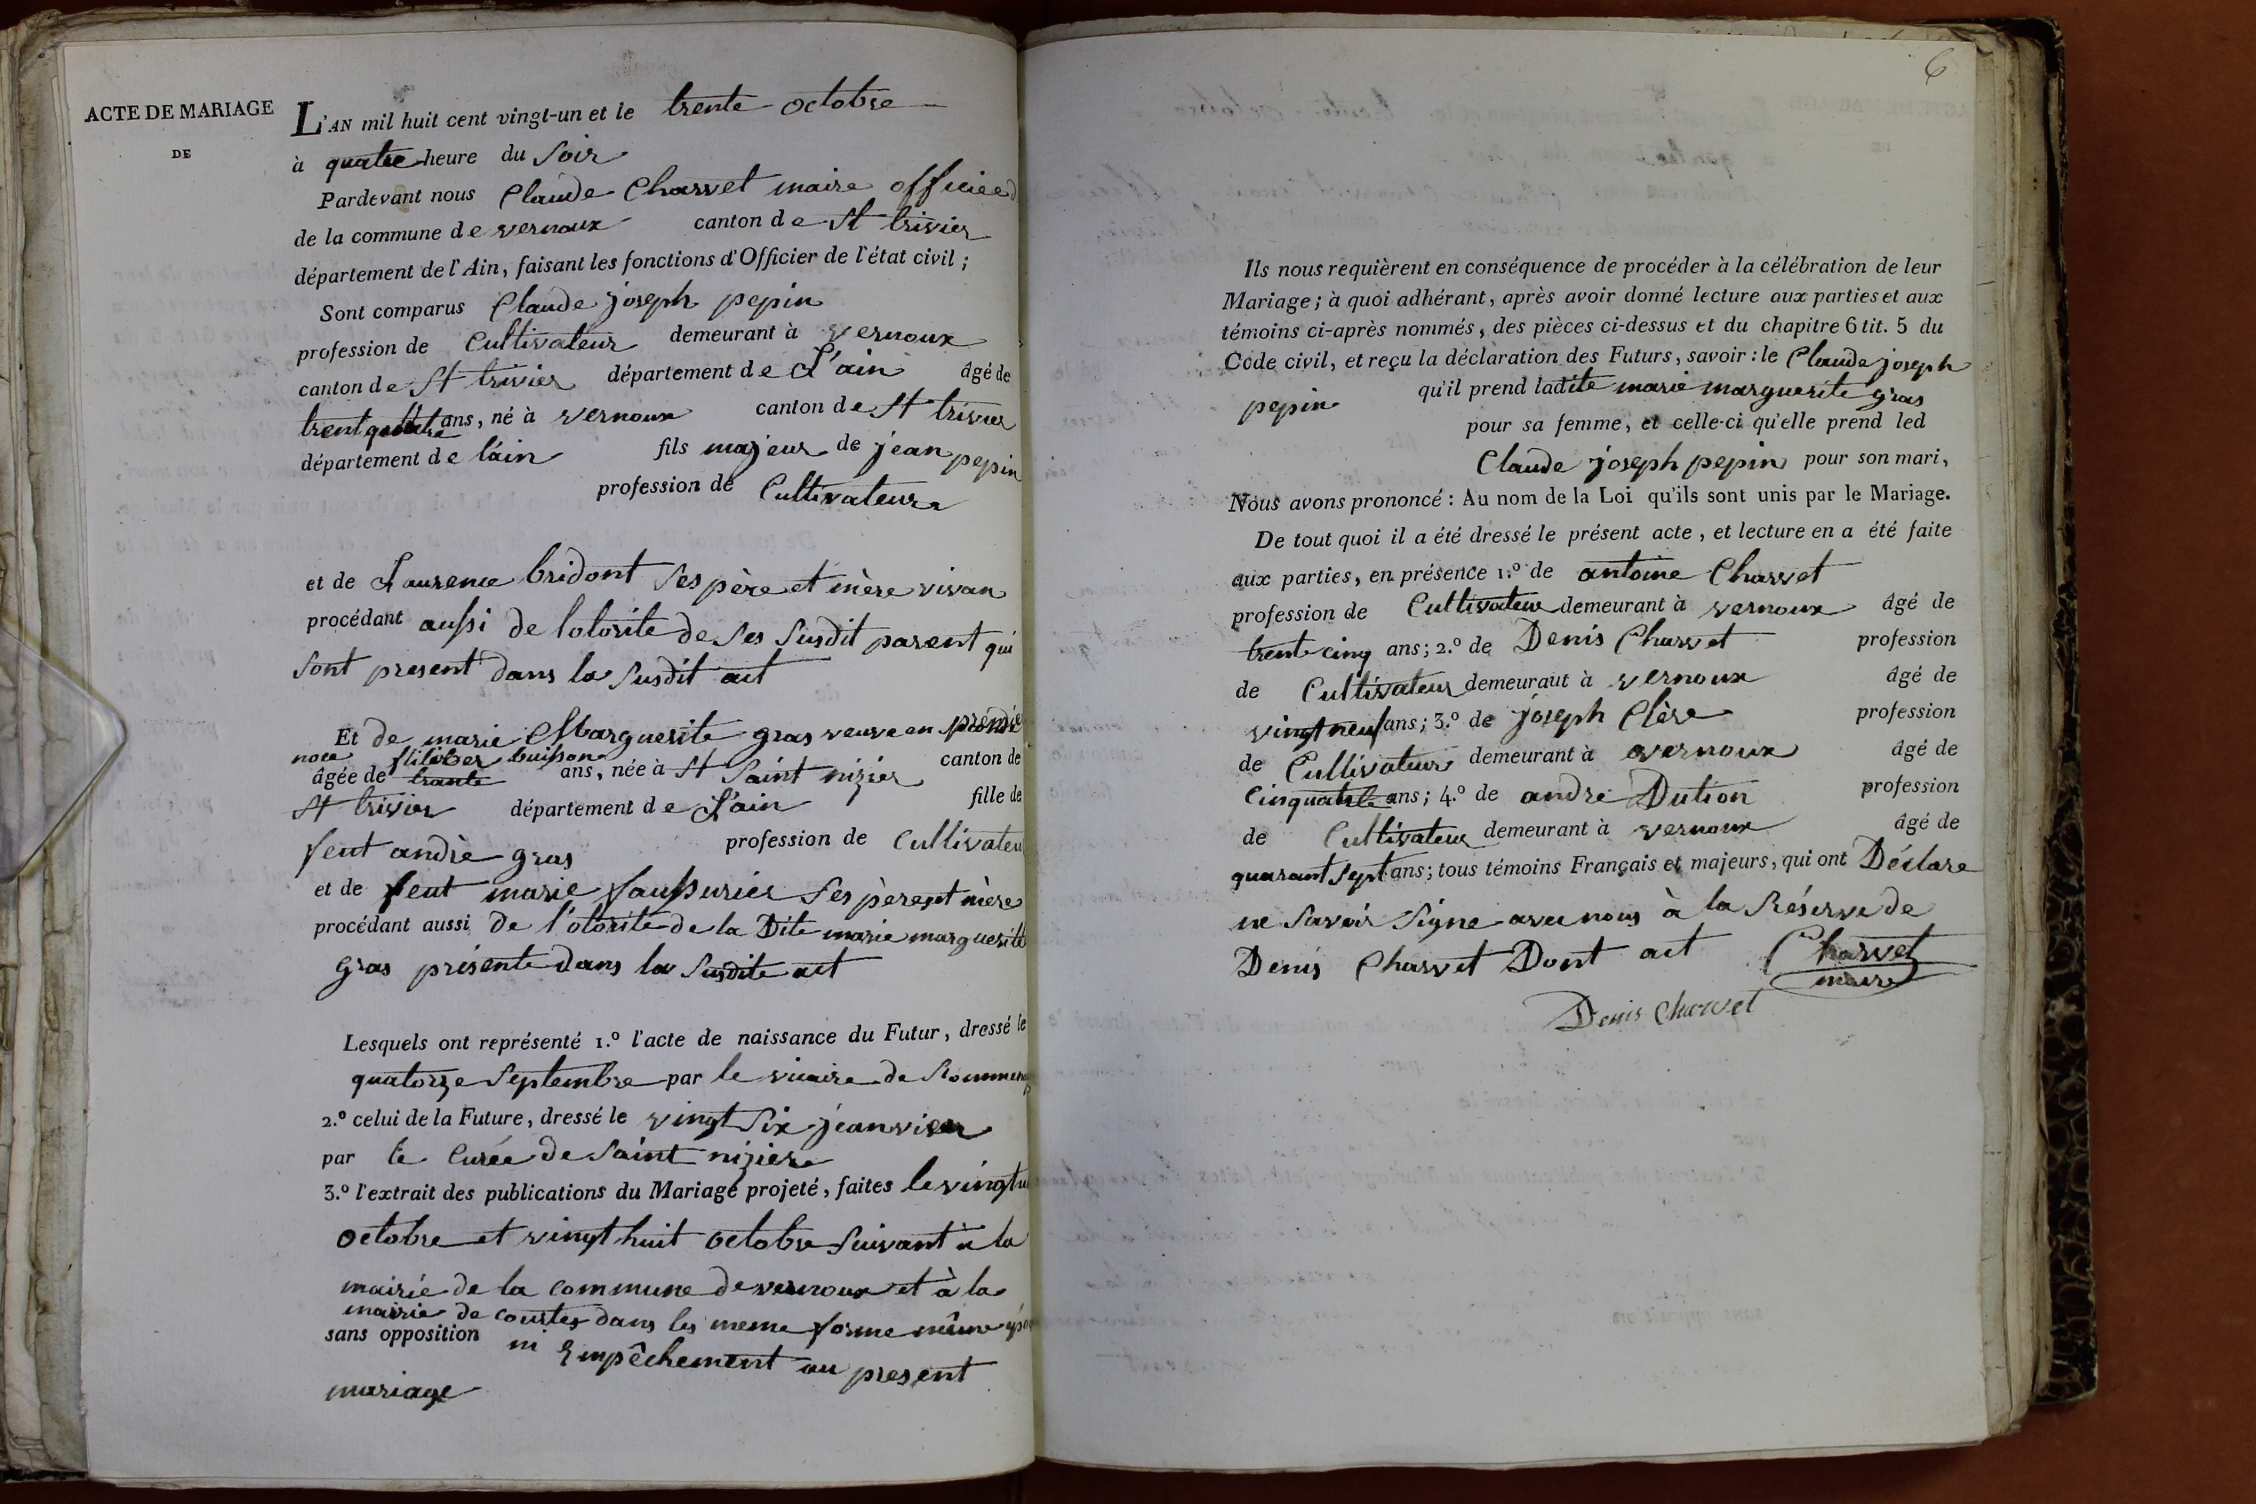 ACTE DE MARIAGE
DE
L'AN mil huit cent vingt-un et le trente octobre
à quatre heure du soir
Pardevant nous Claude Charvet maire officier
de la commune de vernoux canton de St trivier
département de l'Ain, faisant les fonctions d'Officier de l'état civil ;
Sont comparus Claude joseph pepin
profession de Cultivateur demeurant à vernoux
canton de St trivier département de L'ain âgé de
trent quattre ans, né à vernoux canton de St trivier
département de lain fils majeur de jean pepin
profession de Cultivateur
et de Laurence bridont ses père et mère vivan
procédant aussi de lotorite de ses susdit parent qui
sont present dans la susdit act
Et de marie Marguerite gras veuve en premie
noce buisson
âgée de trante ans, née à St Saint nizier canton de
St trivier département de L'ain fille de
feut andrè gras profession de Cultivateu
et de feut marie ses père et mère
procédant aussi de l'otorite de la Dite marie marguerite
gras présente dans la susdite act
Lesquels ont représenté 1.º l'acte de naissance du Futur, dressé le
quatorze septembre par le vicaire de
2.º celui de la Future, dressé le vingt six jeanvier
par le Curée de Saint niziere
3.º l'extrait des publications du Mariage projeté, faites le vingtu
octobre et vingt huit octobre suivant a la
mairie de la commune de vernoux et à la
mairie de courtes dans les meme forme même
sans opposition ni Empêchement au present
mariage
6
Ils nous requièrent en conséquence de procéder à la célébration de leur
Mariage ; à quoi adhérant, après avoir donné lecture aux parties et aux
témoins ci-après nommés, des pièces ci-dessus et du chapitre 6 tit. 5 du
Code civil, et reçu la déclaration des Futurs, savoir : le Claude joseph
pepin qu'il prend ladite marie marguerite gras
pour sa femme, et celle-ci qu'elle prend led
Claude joseph pepin pour son mari,
Nous avons prononcé : Au nom de la Loi qu'ils sont unis par le Mariage.
De tout quoi il a été dressé le présent acte, et lecture en a été faite
aux parties, en présence 1.º de antoine Charvet
profession de Cultivateur demeurant à vernoux âgé de
trente cinq ans ; 2.º de Denis Charvet profession
de Cultivateur demeurant à vernoux âgé de
vingt neuf ans ; 3.º de joseph Clère profession
de Cultivateur demeurant à vernoux âgé de
ans ; 4.º de andrè Dution profession
de Cultivateur demeurant à vernoux âgé de
quarant sept ans ; tous témoins Français et majeurs, qui ont Déclare
ne savoir signe avec nous à la Réserve de
Denis Charvet Dont act Charvet
maire
Denis Charvet